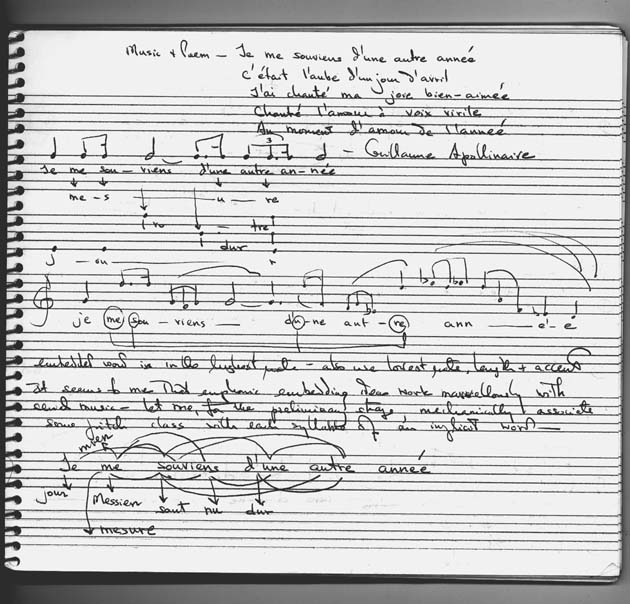 Music + Poem — Je me souviens d'une autre année
C'était l'aube d'un jour d'avril
J'ai chanté ma joie bien-aimée
Chanté l'amour à voix virile
Au moment d'amour de l'année
3
— Guillaume Apollinaire
Je me sou — viens d'une autre an-née
me - s — u — re
i ro — tre
i dur
j - ou — r
je me sou - viens — d'u - ne aut - re ann — é - e
embedded word is in the highest note — also use lowest note, length + accent
It seems to me that euphonic embedding ideas work marvellously with
serial music — let me, for the preliminary stage, mechanically associate
some pitch class with each syllable of an implicit word —
mien
Je me souviens d'une autre année
jour
Messien saut nu dur
mesure